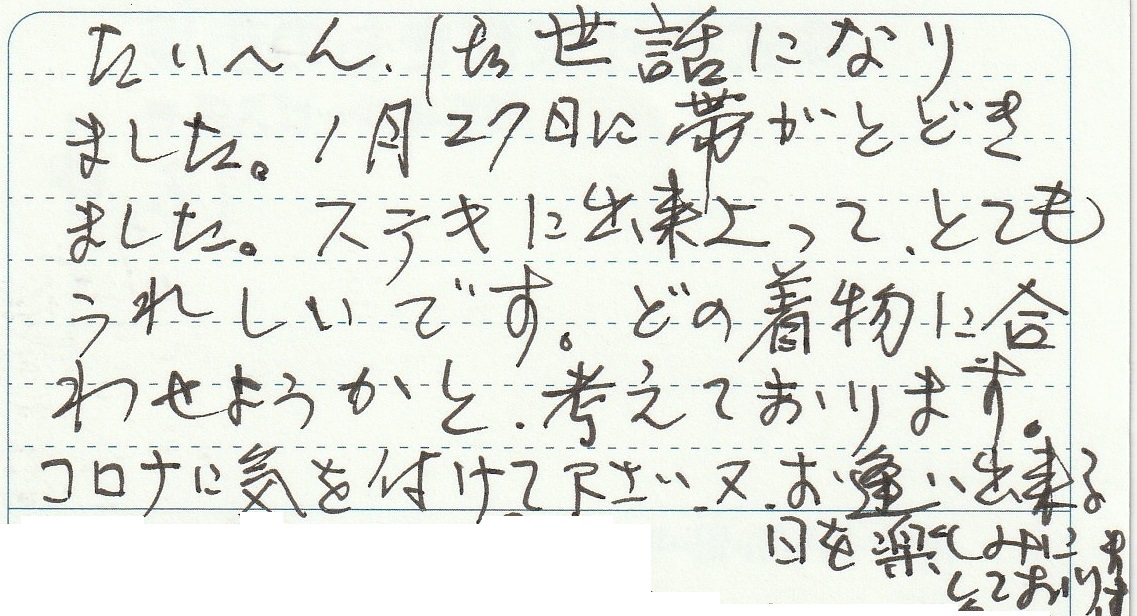 たいへん、お世話になり
ました。1月27日に帯がとどき
ました。ステキに出来上って、とても
うれしいです。どの着物に合
わせようかと、考えております。
コロナに気を付けて下さい、又、お逢い出来る
日を楽しみに
しております